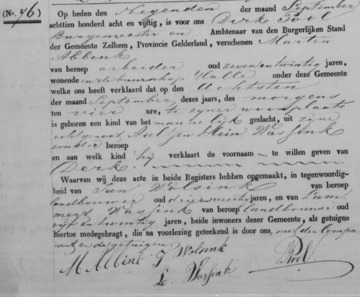 (N. 46)
Op heden den Negenden der maand September
achttien honderd acht en vijftig, is voor ons Dirk Pool
Burgemeester en Ambtenaar van den Burgerlijken Stand
der Gemeente Zelhem, Provincie Gelderland, verschenen Marten
Abbink
van beroep arbeider oud zeven en twintig jaren,
wonende in de buurtschap Halle onder deze Gemeente
welke ons heeft verklaard dat op den Achtsten
der maand September, dezes jaars, des morgens
ten vier ure, te zijner woonplaats
is geboren een kind van het mannelijk geslacht, uit zijne
echtgenoot Aaltjen Wassink
zonder beroep
en aan welk kind hij verklaart de voornaam te willen geven van
Derk
Waarvan wij deze acte in beide Registers hebben opgemaakt, in tegenwoordig-
heid van Jan Wolsink van beroep
landbouwer oud jaren, en van
Wassink van beroep landbouwer oud
vijf en twintig jaren, beide inwoners dezer Gemeente, als getuigen
hiertoe medegebragt, die na voorlezing geteekend is door ons, met den Compa
rant en de getuigen.
M Abbink J Wolsink Pool
Wassink